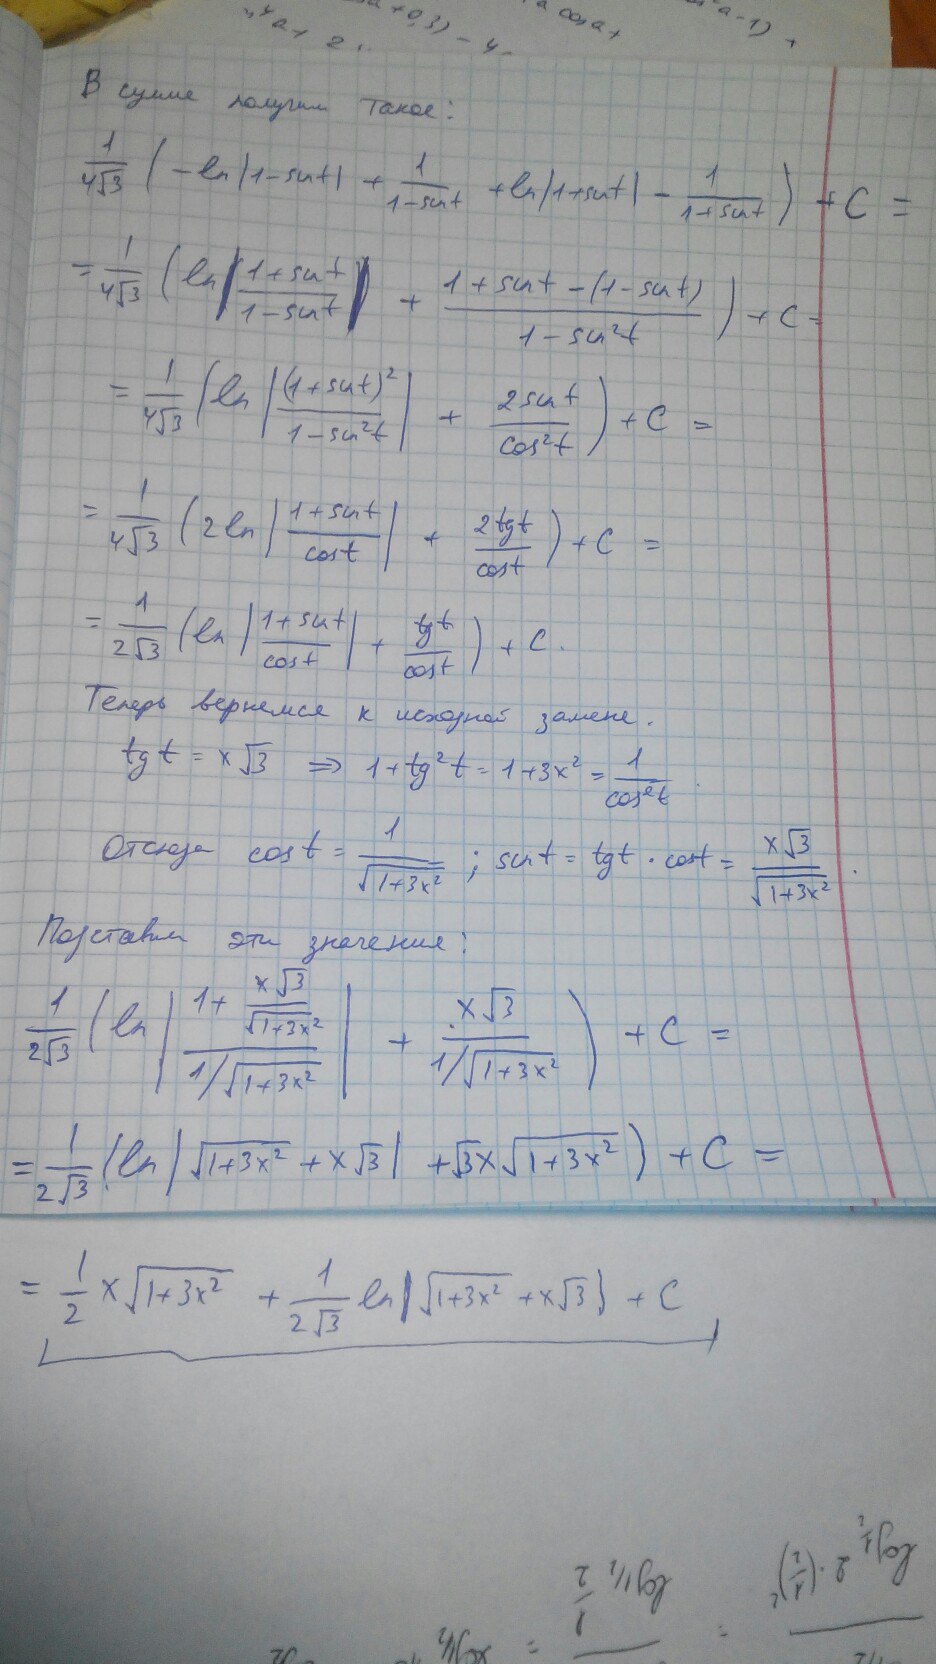 В сумме получим такое:
1/(4√3) (-ln|1-sint| + 1/(1-sint) + ln|1+sint| - 1/(1+sint)) + C =
= 1/(4√3) (ln|(1+sint)/(1-sint)| + (1+sint-(1-sint))/(1-sin²t)) + C =
= 1/(4√3) (ln|(1+sint)²/(1-sin²t)| + 2sint/cos²t) + C =
= 1/(4√3) (2ln|(1+sint)/cost| + 2tgt/cost) + C =
= 1/(2√3) (ln|(1+sint)/cost| + tgt/cost) + C.
Теперь вернемся к исходной замене.
tgt = x√3 ⇒ 1+tg²t = 1+3x² = 1/cos²t.
Отсюда cost = 1/√(1+3x²); sint = tgt·cost = x√3/√(1+3x²).
Подставим эти значения:
1/(2√3) (ln|(1+x√3/√(1+3x²))/(1/√(1+3x²))| + x√3/(1/√(1+3x²))) + C =
= 1/(2√3) (ln|√(1+3x²) + x√3| + √3x√(1+3x²)) + C =
= 1/2 x√(1+3x²) + 1/(2√3) ln|√(1+3x²) + x√3| + C